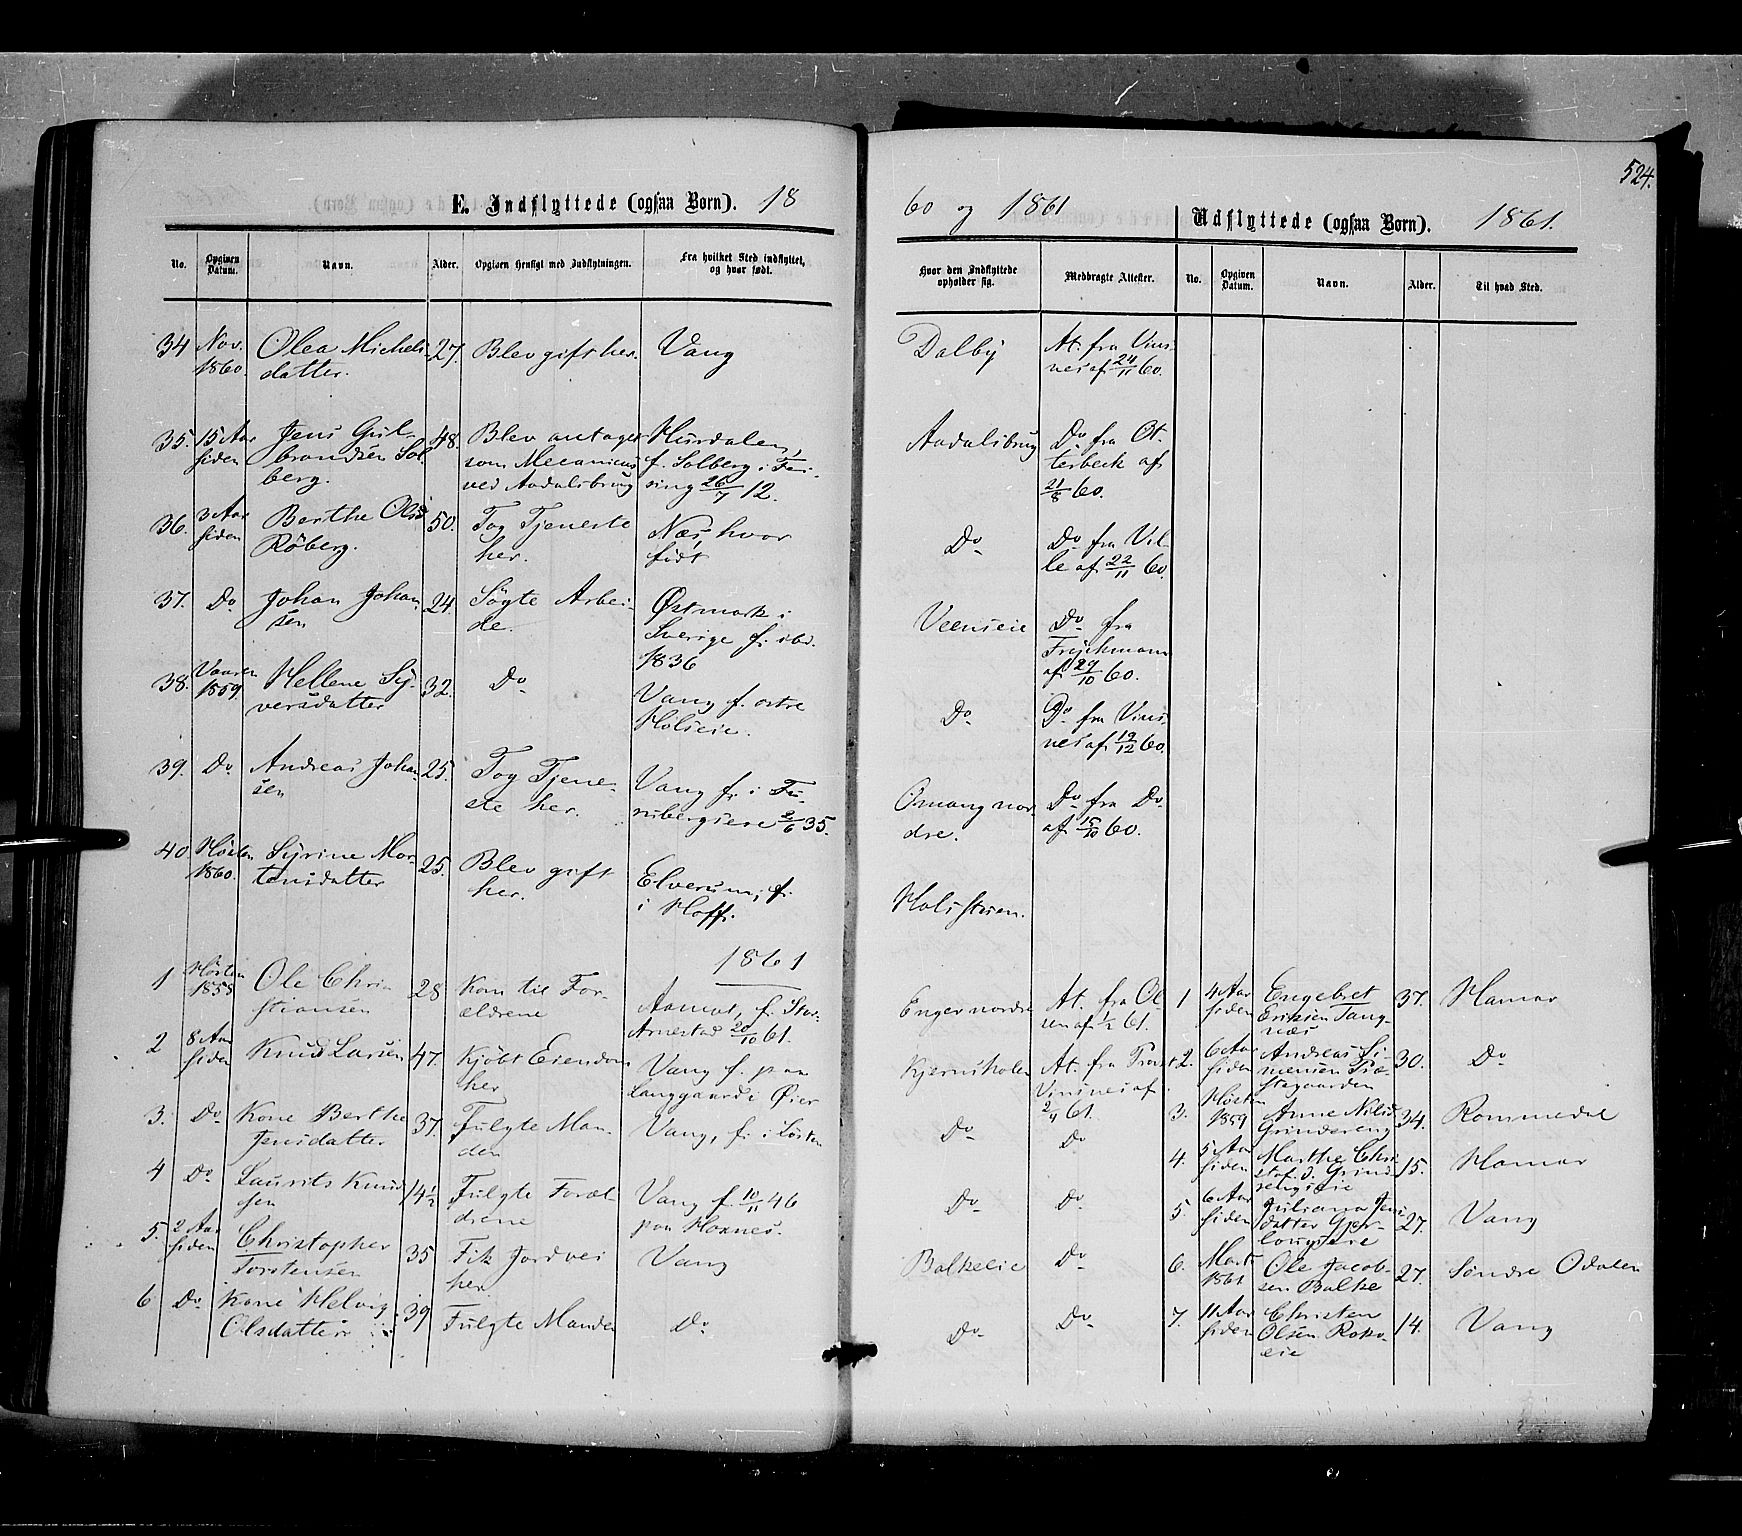 524.
E. Indflyttede (ogsaa Born). 18
60 og 1861
Udflyttede (ogsaa Born). 1861.
No. Opgiven Datum. Navn. Alder. Opgiven Hensigt med Indflytningen. Fra hvilket Sted indflyttet, og hvor født.
Hvor den Indflyttede opholder sig. Medbragte Attester. No. Opgiven Datum. Navn. Alder. Til hvad Sted.
34 Nov. 1860. Olea Michels datter. 27. Blev gift her. Vang Dalby At. fra Vins- nes af 24/11 60.
35. 15 Aar siden Jens Gul- brandsen Sol- berg. 48. Blev antaget som Mecanicus ved Aadalsbrug Hurdalen, f. Solberg i Fei- ring 26/7 12. Aadalsbrug Do fra Ot- terbeck af 21/8 60.
36. 3 Aar siden Berthe Olsd Röberg. 50. Tog Tjeneste her. Næs, hvor födt Do Do fra Vil- le af 22/11 60.
37. Do Johan Johan- sen 24. Søgte Arbei- de. Østmark i Sverige f. ibd. 1836 Veenseie Do fra af 29/10 60.
38. Vaaren 1859. Hellene Sy- versdatter 32. Do Vang f. østre Holseie. Do Do fra Vins- nes af 19/12 60.
39. Do Andreas Johan sen 25. Tog Tjene- ste her. Vang f. i Fu- rubergseie 2/6 35. Omang nor- dre. Do fra Do af 15/10 60.
40 Høsten 1860. Syrine Mor- tensdatter 25. Blev gift her. Elverum, f. i Hoff. Holsstuen.
1861
1 Høsten 1858 Ole Chri- stiansen 28 Kom til For- ældrene Aamot, f. Stor- Arnestad 20/10 61. Enger nordre At. fra Ol- sen af 1/2 61.
2 8 Aar siden Knud Larsen 47. Kjøbt Eiendom her Vang f. paa Langgaard i Øier Kjernsholen At. fra Provst Vinsnes af 2/4 61.
3. Do Kone Berthe Jensdatter 37. Fulgte Man- den Vang, f. i Løsten Do Do
4 Do Laurits Knud sen 14½ Fulgte Foræl- drene Vang f. 10/11 46 paa Hoxnes. Do Do
5. 2 Aar siden Christopher Torstensen 35 Fik Jordvei her. Vang Balkeeie Do
6 Do Kone Helvig Olsdatter 39 Fulgte Manden Do Do Do
1 4 Aar siden Engebret Eriksen Tang- næs 37. Hamar
2. 6 Aar siden Andreas Si- mensen Præ- stegaarden 30. Do
3. Høsten 1859 Anne Nilsd Grindereng 34. Rommedal
4. 5 Aar siden Marthe Chri stof. d. Grind- rengseie 15. Hamar
5. 6 Aar siden Juliana Jens datter Gjør- 27. Vang
6. Marts 1861 Ole Jacob- sen Balke 27. Søndre Odalen
7. 11 Aar siden Christen Olsen Roko- eie 14. Vang